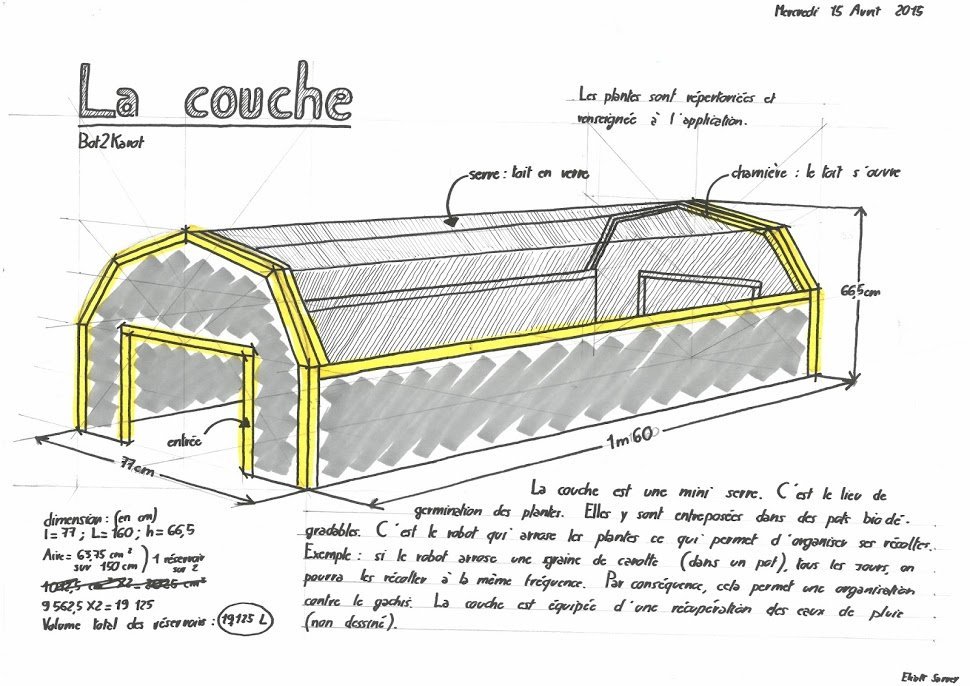 Mercredi 15 Avril 2015
La couche
Bot2Karot
Les plantes sont répertoriées et
renseignée à l'application.
serre : toit en verre
charnière : le toit s'ouvre
66,5cm
entrée
1m60
77cm
La couche est une mini serre. C'est le lieu de
germination des plantes. Elles y sont entreposées dans des pots biodé-
gradables. C'est le robot qui arrose les plantes ce qui permet d'organiser ses récoltes.
Exemple : si le robot arrose une graine de carotte (dans un pot), tous les jours, on
pourra les récolter à la même fréquence. Par conséquence, cela permet une organisation
contre le gachis. La couche est équipée d'une récupération des eaux de pluie
(non dessiné).
dimension : (en cm)
l = 77 ; L = 160 ; h = 66,5
Aire = 63,75 cm²
sur 150 cm
1 réservoir
sur 2
9 562,5 X2 = 19 125
Volume total des réservoirs : 19125 L
Eliott